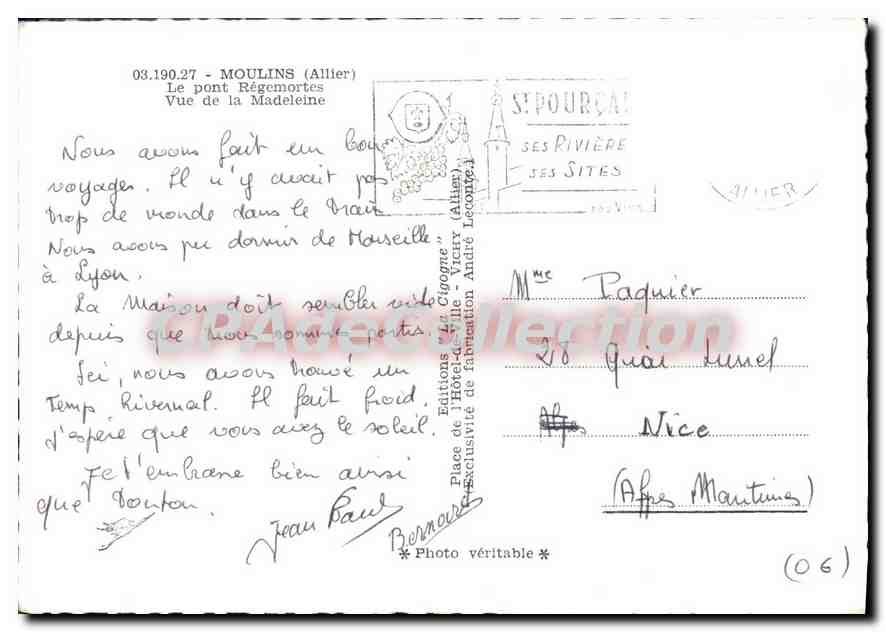 03.190.27 - MOULINS (Allier)
Le pont Régemortes
Vue de la Madeleine
Nous avons fait un bon
voyages. Il n'y avait pas
trop de monde dans le train
Nous avons pu dormir de Marseille
à Lyon.
La Maison doit sembler vide
depuis que nous sommes partis.
Ici, nous avons trouvé un
Temps hivernal. Il fait froid.
J'espère que vous avez le soleil.
Je t'embrasse bien ainsi
que Tonton.
Jean Paul
Bernard
Editions "La Cigogne"
Place de l'Hôtel-de-Ville - VICHY (Allier)
Exclusivité de fabrication André Leconte.)
* Photo véritable *
ST POURÇAI
SES RIVIÈRE
SES SITES
ALLIER
Mme Paquier
28 Quai Lunel
Alpes Nice
(Alpes Maritimes)
(06)
CPADeCollection